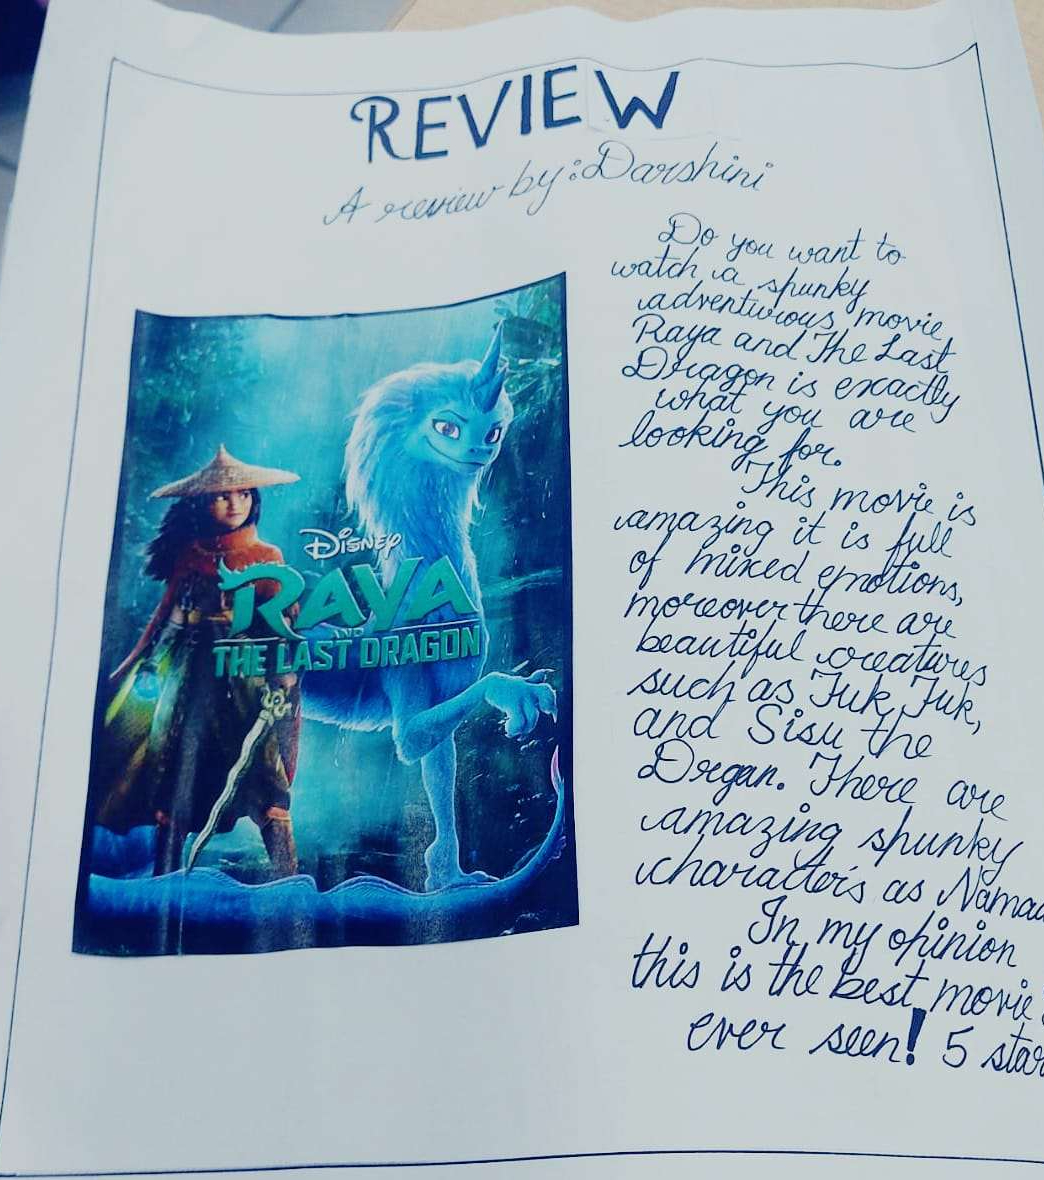 REVIEW
A review by: Darshini
Do you want to
watch a spunky
adventurous movie
Raya and The Last
Dragon is exactly
what you are
looking for.
This movie is
amazing it is full
of mixed emotions,
moreover there are
beautiful creatures
such as Tuk Tuk,
and Sisu the
Drgan. There are
amazing spunky
characters as Namaa
In my opinion
this is the best movie
ever seen! 5 star
DISNEY
RAYA
AND
THE LAST DRAGON